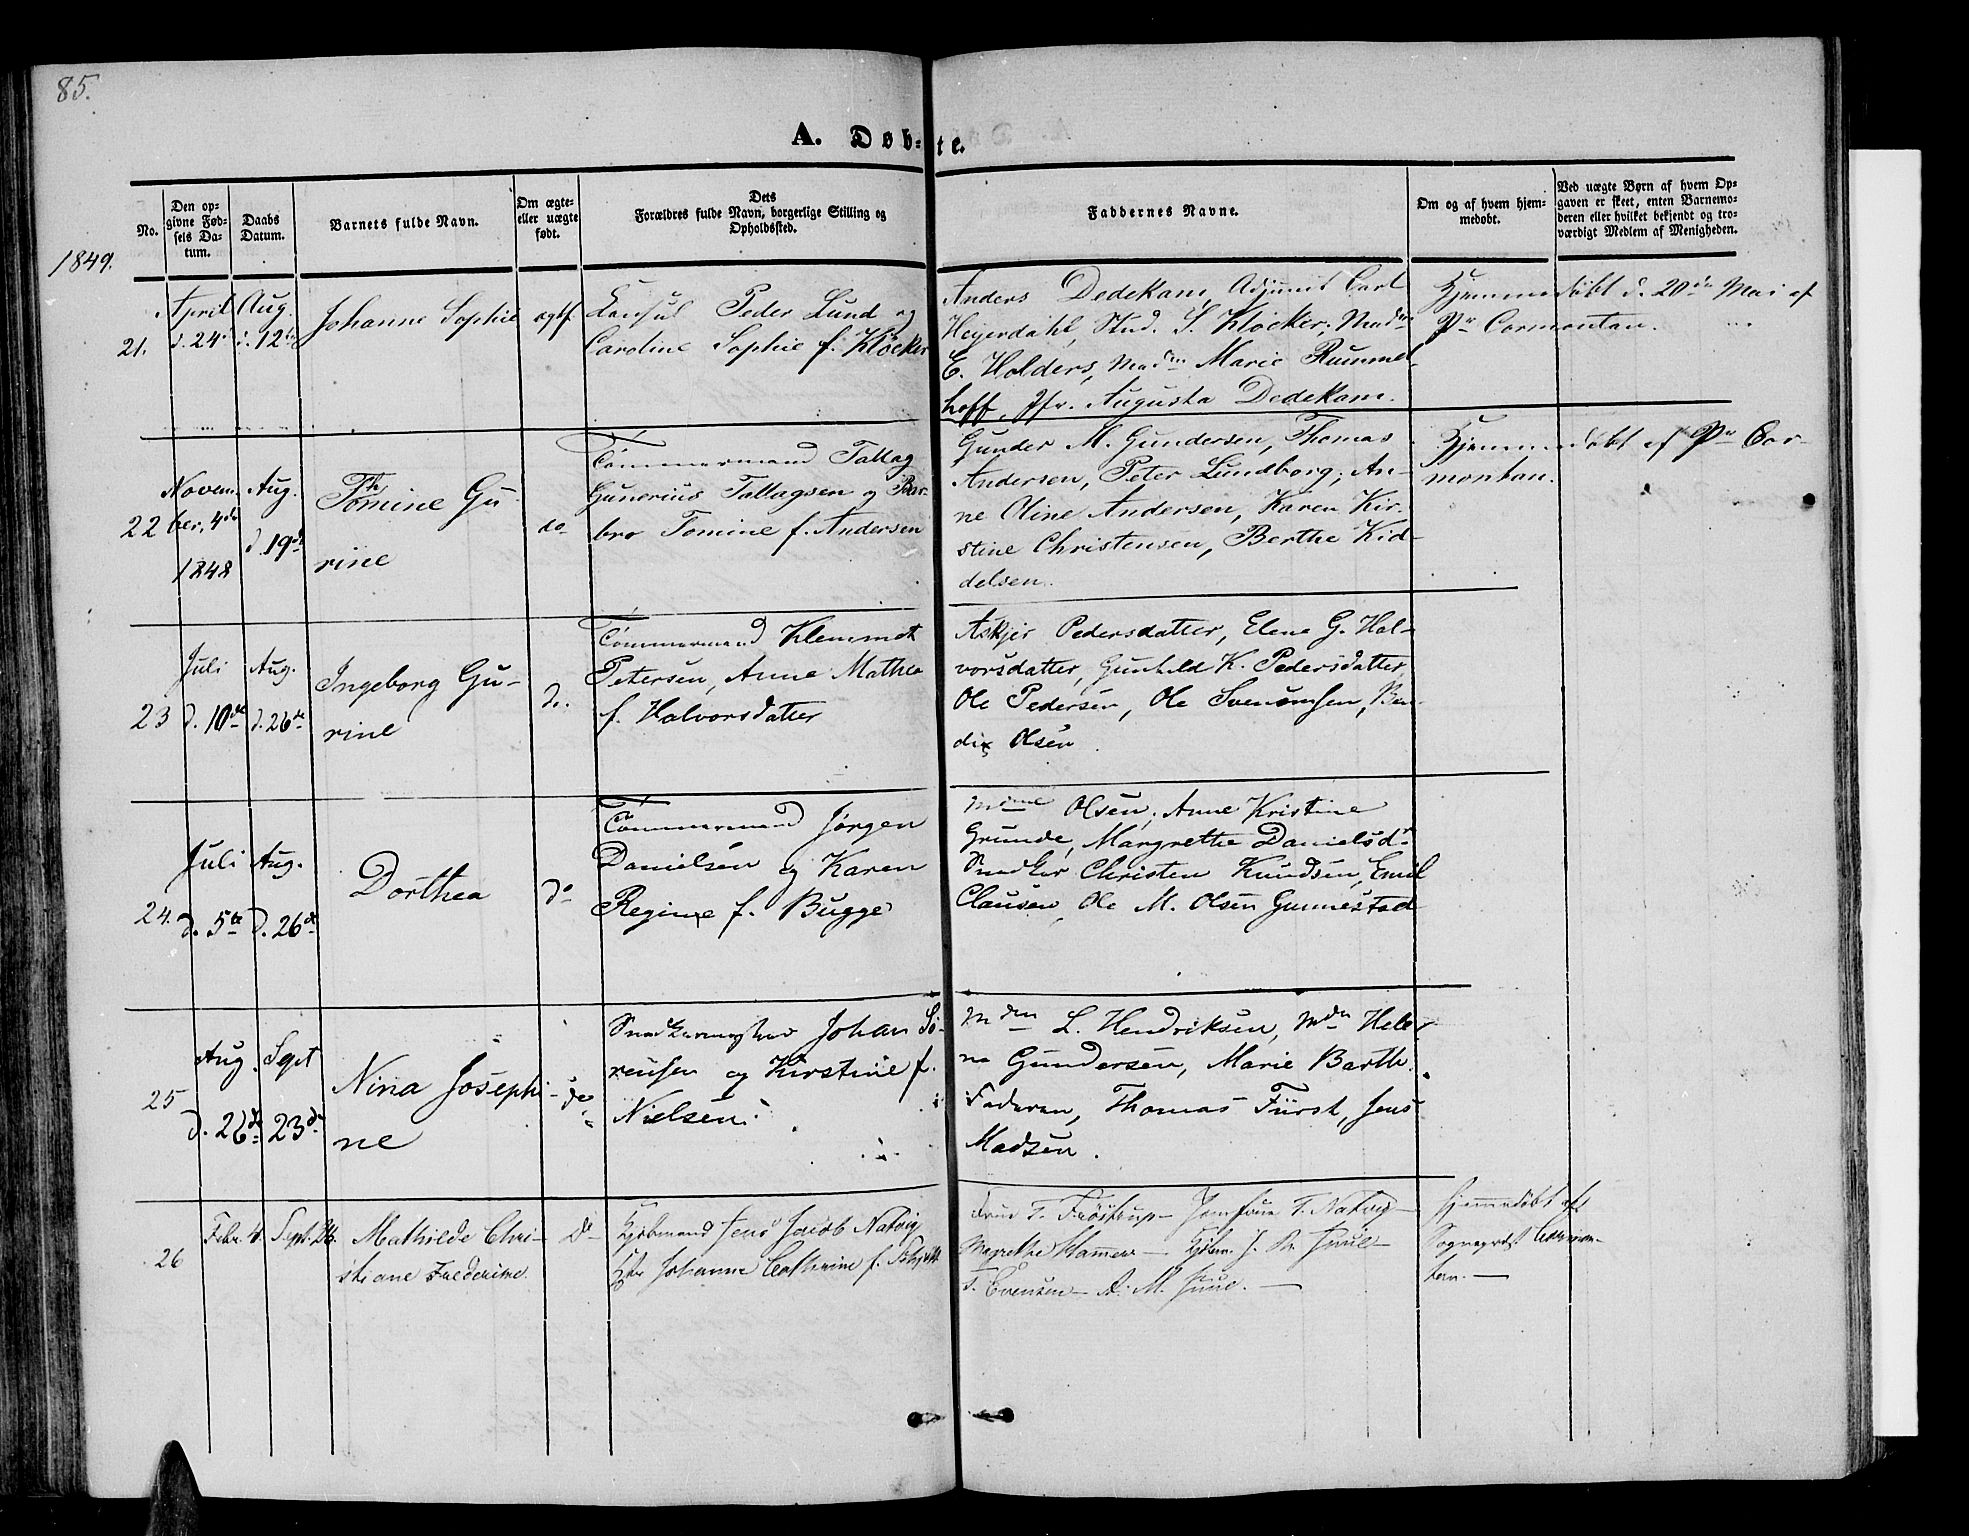 85.
A. Døb-
te.
No.
Den op-
givne Fød-
sels Da-
tum.
Daabs
Datum.
Barnets fulde Navn.
Om ægte
eller uægte
født.
Dets
Forældres fulde Navn, borgerlige Stilling og
Opholdssted.
Faddernes Navne.
Om og af hvem hjem-
medøbt.
Ved uægte Børn af hvem Op-
gaven er skeet, enten Barnemo-
deren eller hvilket bekjendt og tro-
værdigt Medlem af Menigheden.
1849.
21.
April
d. 24
Aug.
d. 12te
Johanne Sophie
ægtf
Consul Peder Lund og
Caroline Sophie f. Kløcker
Anders Dedekam, Adjunct Carl
Heyerdahl, Stud. S. Kløcker, Madm
E. Holders, Madm Marie Rummel-
hoff, Jfr. Augusta Dedekam.
Hjemmedøbt d. 20de Mai af
Pr Cormontan.
22
Novem-
ber, 4de
1848
Aug.
d. 19de
Thomine Gu-
rine
do
Tømmermand Tallag
Gunerius Tallagsen og Bar-
bro Tomine f. Andersen
Gunder M. Gundersen, Thomas
Andersen, Peter Lundborg, An-
ne Oline Andersen, Karen Kir-
stine Christensen, Berthe Kid-
delsen.
Hjemmedøbt af Pr Cor-
montan.
23
Juli
d. 10de
Aug.
d. 26de
Ingeborg Gu-
rine
do.
Tømmermand Klemmet
Petersen, Anne Mathea
f. Halvorsdatter
Askjer Pedersdatter, Elene G. Hal-
vorsdatter, Gunhild K. Pedersdatter,
Ole Pedersen, Ole Svenomsen, Ben-
dix Olsen.
24.
Juli
d. 5te
Aug.
d. 26de
Dorthea
do
Tømmermand Jørgen
Danielsen og Karen
Regine f. Bugge
Mdme Olsen, Anne Kristine
Grunde, Margrethe Danielsd.
Snedker Christen Knudsen, Emil
Clausen, Ole M. Olsen Gunnestad
25
Aug.
d. 26de
Sept
23de
Nina Josephi-
ne
do
Snedkermester Johan Sø-
rensen og Kirstine f.
Nielsen.
Mdm L. Hendriksen, Mdm Hele-
ne Gundersen, Marie Barth.
Faderen, Thomas Fürst, Jens
Madsen.
26
Febr. 4.
Sept. 24.
Mathilde Chri-
stiane Frederikke
do
Kjøbmand Jens Jacob Natvig
Johanne Cathrine f.
Frue T. Frøstrup — Jomfrue T. Natvig —
Magrethe Hammer — Kjøbm. J. Juul —
T. Evensen — A. M. Juul. —
Hjemmedøbt af
Sognepræst Cormon-
tan. —